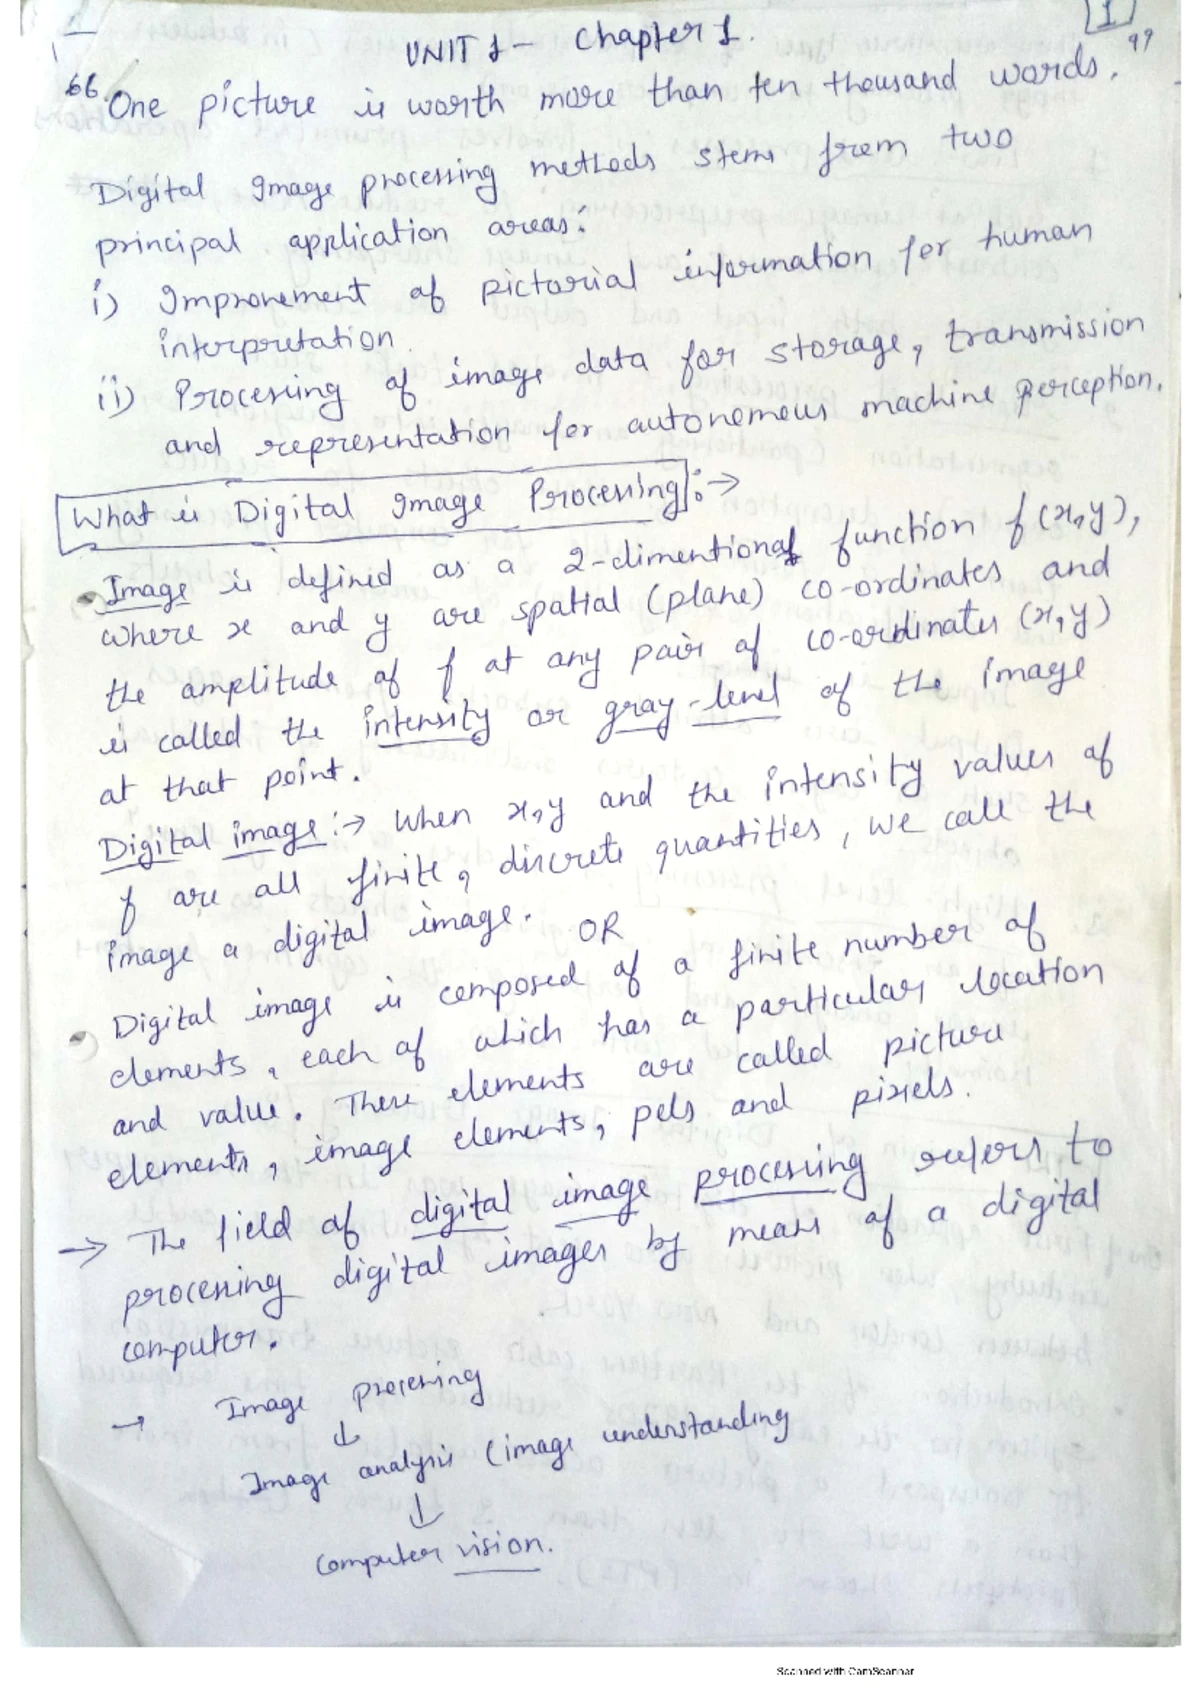 1
UNIT 1 - Chapter 1.
“One picture is worth more than ten thousand words. ”
Digital Image processing methods stems from two
principal application areas:
i) Improvement of pictorial information for human
interpretation.
ii) Processing of image data for storage, transmission
and representation for autonomous machine perception.
What is Digital Image Processing :→
Image is defined as a 2-dimentional function f(x,y),
where x and y are spatial (plane) co-ordinates and
the amplitude of f at any pair of co-ordinates (x,y)
is called the intensity or gray-level of the image
at that point.
Digital image :→ When x,y and the intensity values of
f are all finite, discrete quantities, we call the
image a digital image. OR
Digital image is composed of a finite number of
elements, each of which has a particular location
and value. These elements are called picture
elements, image elements, pels and pixels.
→ The field of digital image processing refers to
processing digital images by means of a digital
computer.
→ Image processing
↓
Image analysis (image understanding
↓
Computer vision.
Scanned with CamScanner